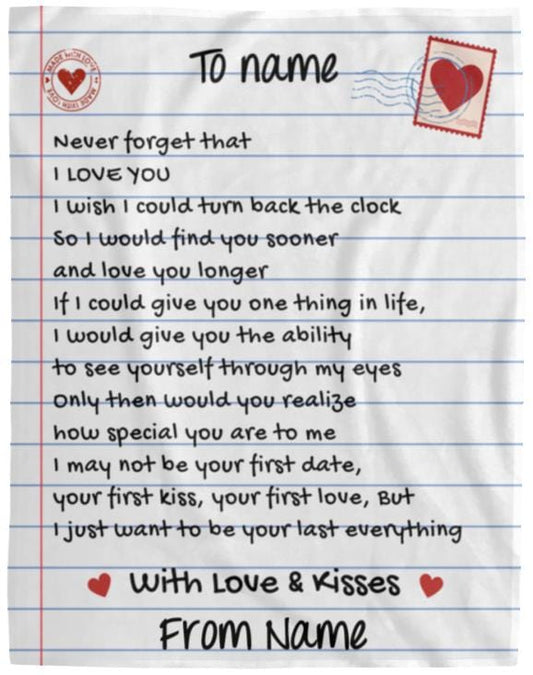 MADE WITH LOVE
MADE WITH LOVE
To name
Never forget that
I LOVE YOU
I wish I could turn back the clock
So I would find you sooner
and love you longer
If I could give you one thing in life,
I would give you the ability
to see yourself through my eyes
only then would you realize
how special you are to me
I may not be your first date,
your first kiss, your first love, But
I just want to be your last everything
With Love & Kisses
From Name